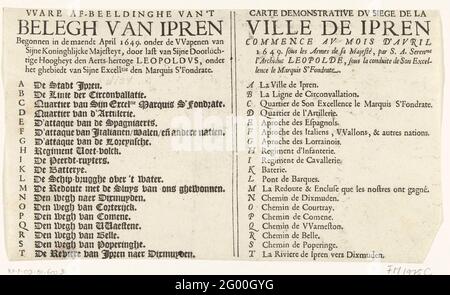 WARE AF-BEELDINGHE VAN'T
BELEGH VAN IPREN
Begonnen in de maendt April 1649. onder de VVapenen van
Sijne Koninghlijcke Majesteyt, door last van Sijne Doorluch-
tige Hoogheyt den Aerts-hertoge LEOPOLDVS, onder
het ghebiedt van Sijne Excell.tie den Marquis S'Fondrate.
A De Stadt Ipren.
B De Linie der Circonvallatie.
C Quartier van Sijn Excell.tie Marquis S'Fondrate.
D Quartier van d'Artillerie.
E D'attaque van de Spagniaerts.
F D'attaque van Italianen/Walen/en andere natien.
G D'attaque van de Loreynsche.
H Regiment Voet-volck.
I De Peerdt-ruyters.
K De Batterye.
L De Schip-brugghe over 't water.
M De Redoute met de Sluys van ons ghewonnen.
N Den wegh naer Dixmuyden.
O Den wegh van Corteryck.
P Den wegh van Comene.
Q Den wegh van Waestene.
R Den wegh van Belle.
S Den wegh van Poperinghe.
T De Reviere van Ipren naer Dixmuyden.
CARTE DEMONSTRATIVE DU SIEGE DE LA
VILLE DE IPREN
COMMENCE AV MOIS D'AVRIL
1649. sous les Armes de sa Majesté, par S. A. Seren.me
l'Archiduc LEOPOLDE, sous la conduite de Son Excel-
lence le Marquis S'Fondrate.
A La Ville de Ipren.
B La Ligne de Circonvallation.
C Quartier de Son Excellence le Marquis S'Fondrate.
D Quartier de l'Artillerie.
E Aproche des Espagnols.
F Aproche des Italiens, VVallons, & autres nations.
G Aproche des Lorrainois.
H Regiment d'Infanterie.
I Regiment de Cavallerie.
K Baterie.
L Pont de Barques.
M La Redoute & Encluse que les nostres ont gagné.
N Chemin de Dixmuden.
O Chemin de Courtray.
P Chemin de Comene.
Q Chemin de VVarneston.
R Chemin de Belle.
S Chemin de Poperinge.
T La Riviere de Ipren vers Dixmuden.
alamy
2G00GYG